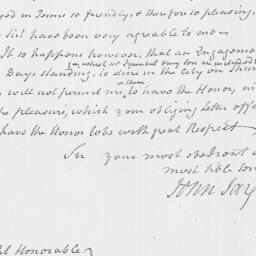 in Terms so friendly, & therefore so pleasing,
Sir! have been very agreable to me
It so happens however, that an Engagement
(in which Mr Trumbull & my son are included)
Days standing, to dine in the City on Thurs
will not permit me to have the Honor,
the pleasure, which your obliging Letter offe
have the Honor to be with great Respect
Sir your most obedient &
most hble
John Jay
Honorable